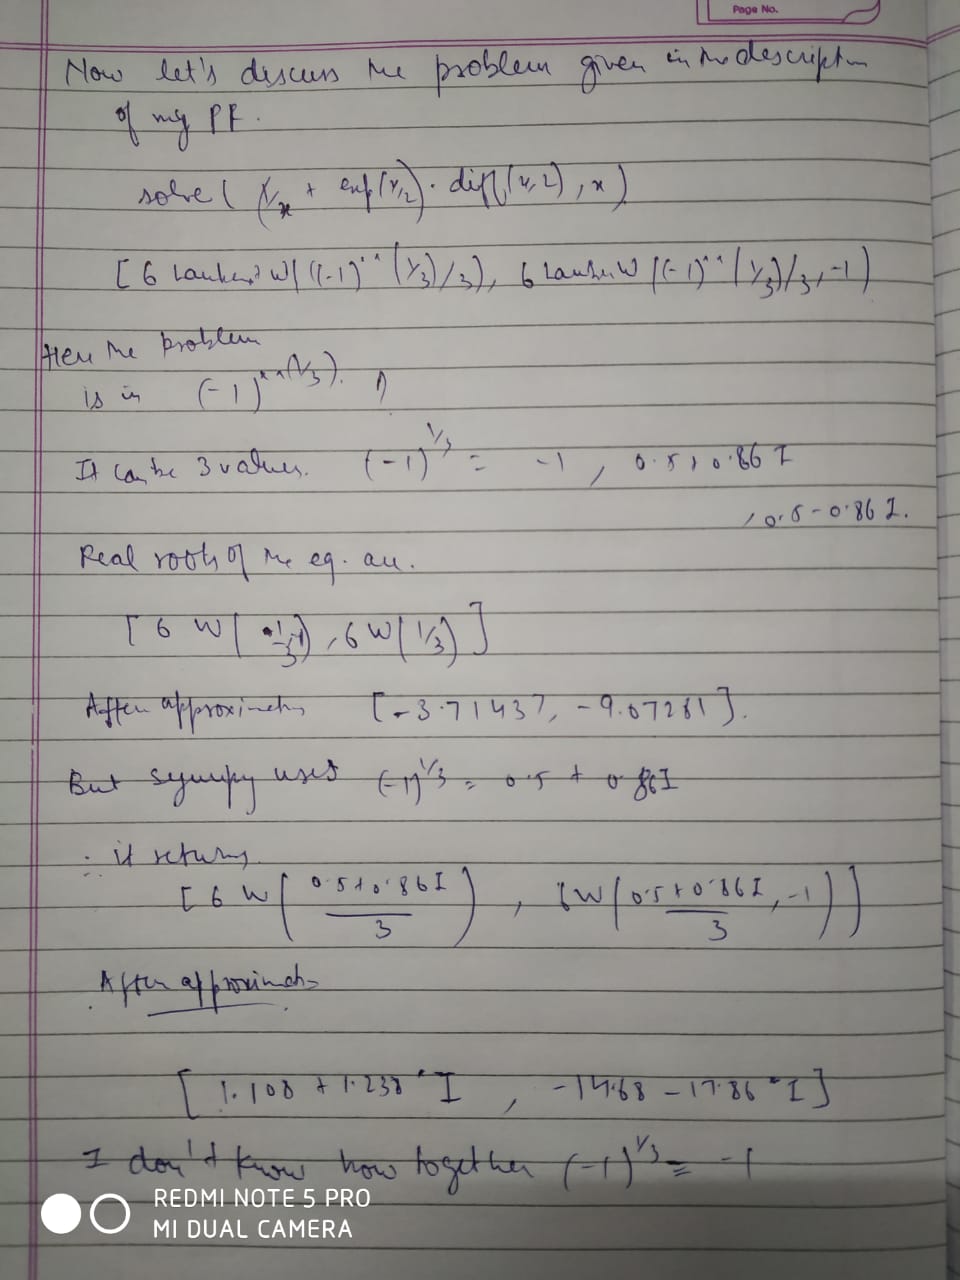 Page No.
Now let's discuss the problem given in the description
of my PR.
solve( (1/x + exp(x/2)). diff(x,2), x)
[6 LambertW((-1)**(1/3)/3), 6 LambertW((-1)**(1/3)/3, -1)
Here the problem
is in (-1)**(1/3).
It can be 3 values. (-1)^1/3 = -1, 0.5+0.86 I
, 0.5-0.86 I.
Real roots of the eq. are.
6 W(1/3)]
After approximation [-3.71437, -9.07281].
But sympy uses (-1)^1/3 = 0.5 + 0.86I
∴ it returns
[6 W( (0.5+0.86I)/3 ), 6W( (0.5+0.86I)/3, -1)]
After approximation
[1.108 + 1.238*I, -14.68 - 17.86*I]
I don't know how to gether (-1)^1/3 = -1
REDMI NOTE 5 PRO
MI DUAL CAMERA